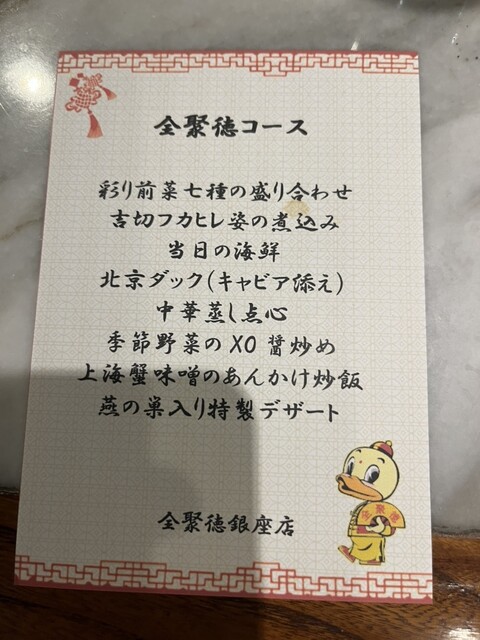 全聚徳コース
彩り前菜七種の盛り合わせ
吉切フカヒレ姿の煮込み
当日の海鮮
北京ダック(キャビア添え)
中華蒸し点心
季節野菜のXO醤炒め
上海蟹味噌のあんかけ炒飯
燕の巣入り特製デザート
全聚徳
全聚徳銀座店